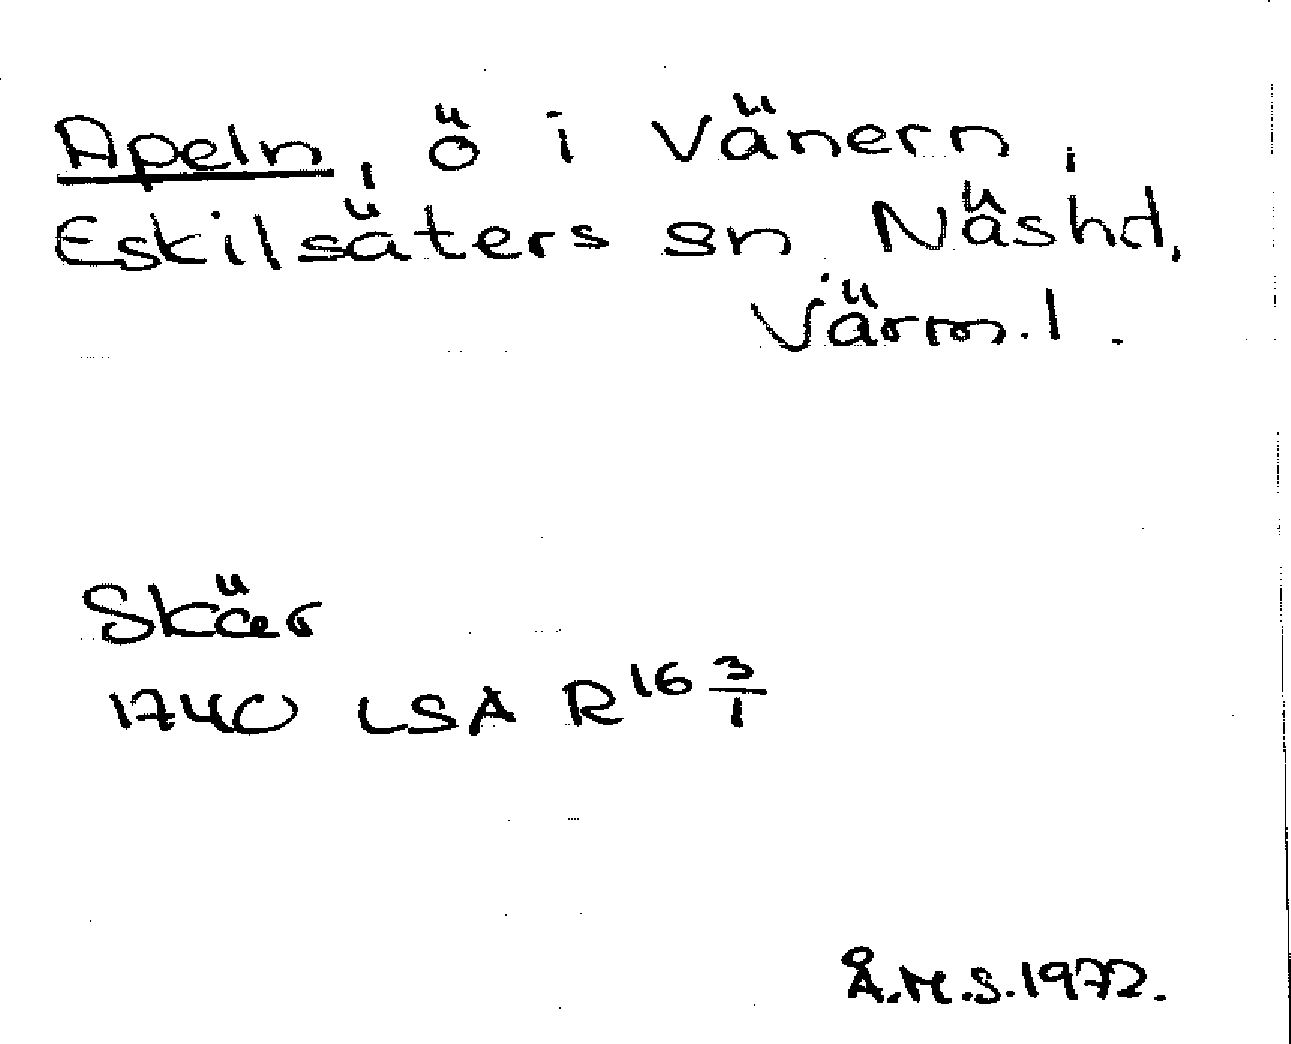 Apeln, ö i Vänern,
Eskilsäters sn Näshd,
Värm. l.
Skär
1740 LSA R16 3/1
Å.M.S. 1972.